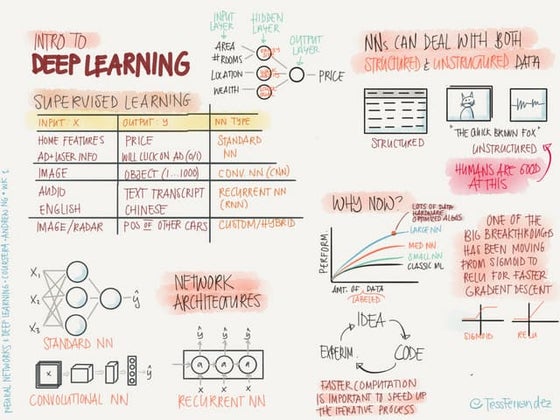 INTRO TO
DEEP LEARNING
INPUT LAYER
HIDDEN LAYER
OUTPUT LAYER
AREA
#ROOMS
LOCATION
WEALTH
PRICE
SUPERVISED LEARNING
INPUT: X OUTPUT: y NN TYPE
HOME FEATURES PRICE STANDARD
AD+USER INFO WILL CLICK ON AD (0/1) NN
IMAGE OBJECT (1...1000) CONV. NN (CNN)
AUDIO TEXT TRANSCRIPT RECURRENT NN
ENGLISH CHINESE (RNN)
IMAGE/RADAR POS OF OTHER CARS CUSTOM/HYBRID
X₁
X₂
X₃
ŷ
STANDARD NN
NETWORK
ARCHITECTURES
X
ŷ
CONVOLUTIONAL NN
ŷ ŷ ŷ
a a a
X X X
RECURRENT NN
NNs CAN DEAL WITH BOTH
STRUCTURED & UNSTRUCTURED DATA
STRUCTURED
"THE QUICK BROWN FOX"
UNSTRUCTURED
HUMANS ARE GOOD
AT THIS
WHY NOW?
LOTS OF DATA
HARDWARE
OPTIMIZED ALGOS
LARGE NN
MED NN
SMALL NN
CLASSIC ML
PERFORM.
AMT. OF DATA
LABELED
IDEA
CODE
EXPERIM.
FASTER COMPUTATION
IS IMPORTANT TO SPEED UP
THE ITERATIVE PROCESS
ONE OF THE
BIG BREAKTHROUGHS
HAS BEEN MOVING
FROM SIGMOID TO
RELU FOR FASTER
GRADIENT DESCENT
SIGMOID
RELU
@TessFerrandez